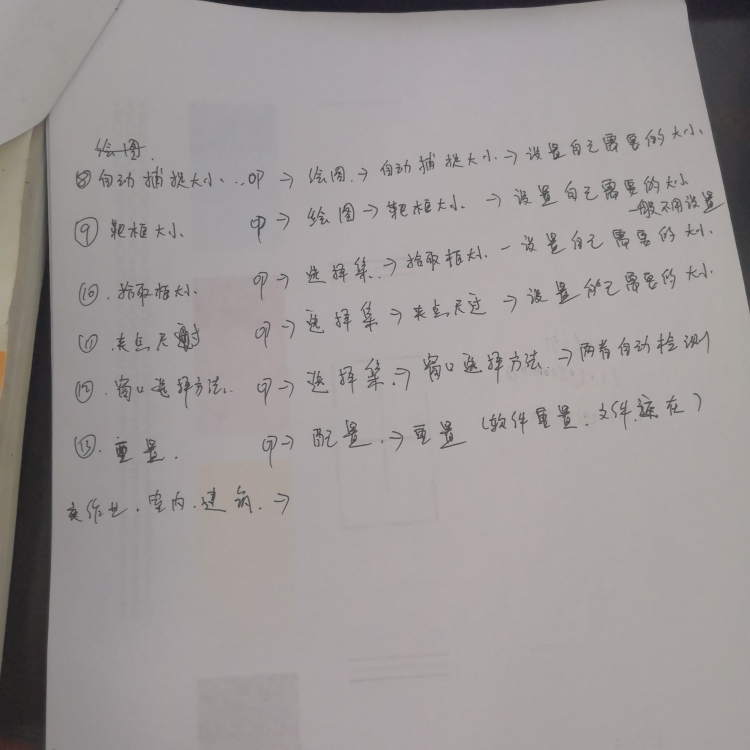 绘图.
⑧自动捕捉大小...op → 绘图.→ 自动捕捉大小.→ 设置自己需要的大小.
⑨ 靶框大小 op → 绘图 → 靶框大小. → 设置自己需要的大小
一般不用设置
⑩.拾取框大小. op → 选择集.→ 拾取框大小. — 设置自己需要的大小.
⑪.夹点尺寸 op → 选择集 → 夹点尺过 → 设置自己需要的大小.
⑫.窗口选择方法. op → 选择集.→ 窗口选择方法. → 两者自动检测
⑬.重置. op → 配置.→ 重置 (软件重置.文件 在)
室内.建筑.→